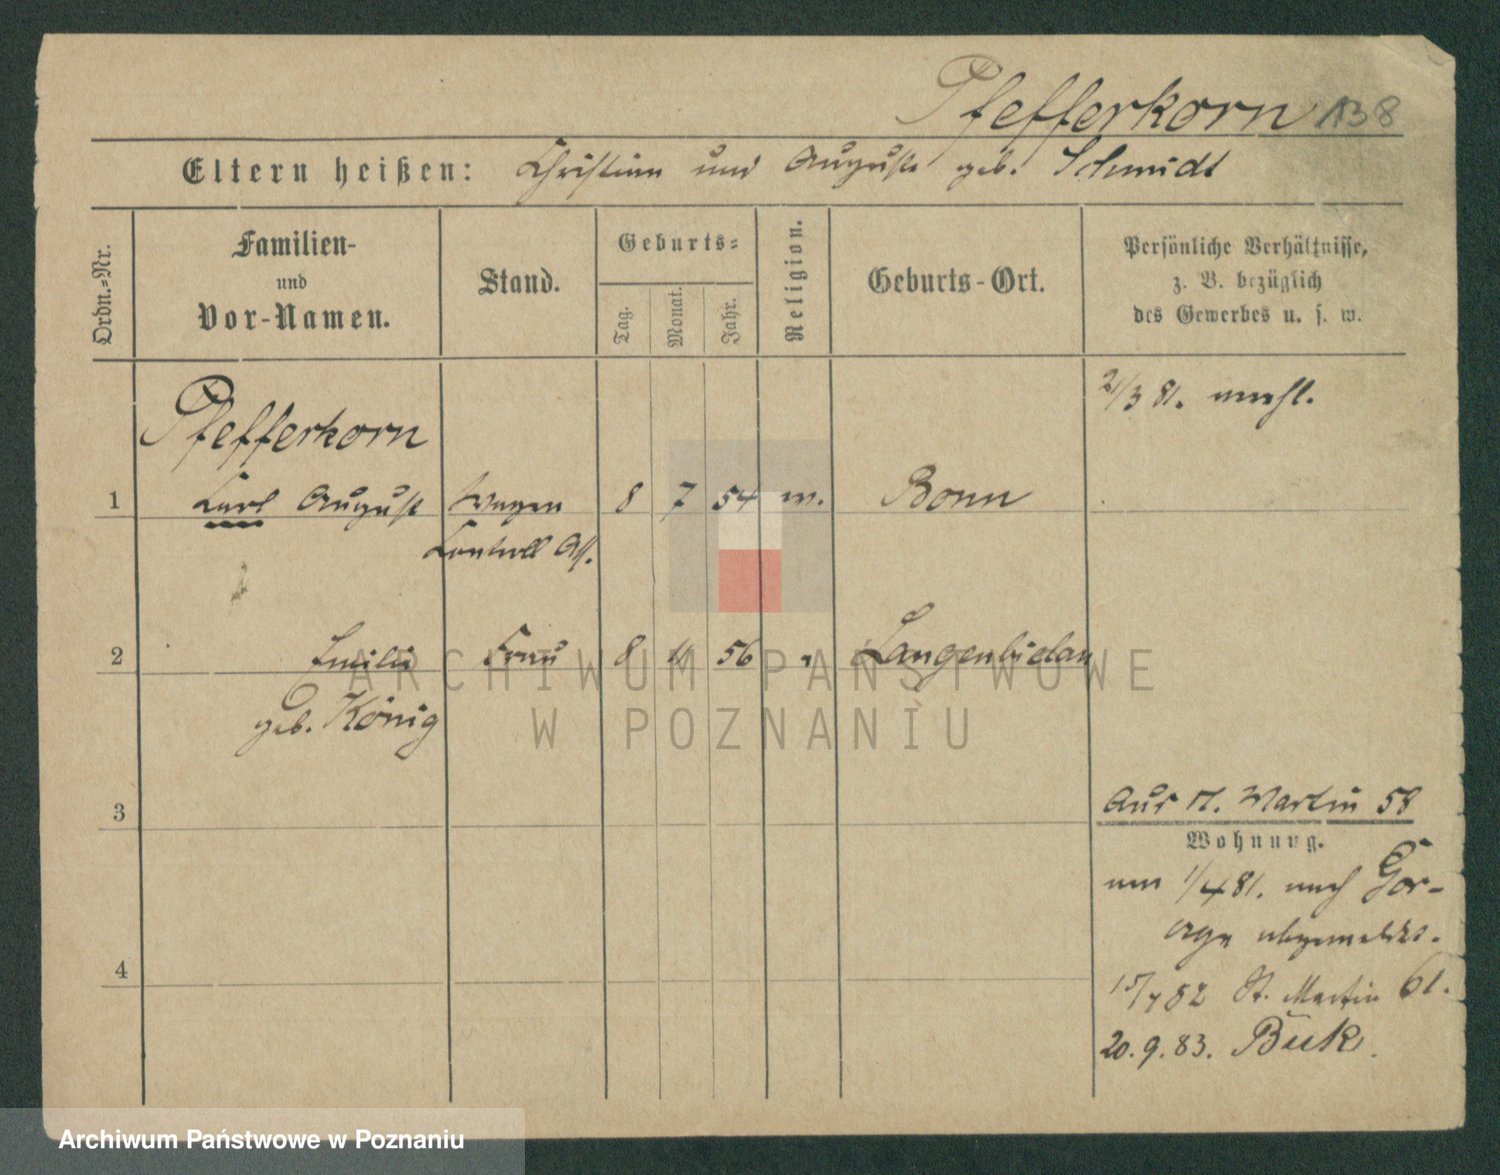 Pfefferkorn 138
Eltern heißen: Christian und Auguste geb. Schmidt
Ordn.-Nr.
Familien-
und
Vor-Namen.
Stand.
Geburts-
Tag.
Monat.
Jahr.
Religion.
Geburts-Ort.
Persönliche Verhältnisse,
z. B. bezüglich
des Gewerbes u. s. w.
2/3 81.
Pfefferkorn
1 Carl August Wagen 8 7 54 Bonn
Controll Ass.
2 Emilie Frau 8 56 " Langenbielau
geb. König
ARCHIWUM PAŃSTWOWE
W POZNANIU
3
Aus St. Martin 58
Wohnung.
am 1/4 81. nach Gor-
abgemeldet.
4
15/7 82 St. Martin 61.
20. 9. 83. Buk.
Archiwum Państwowe w Poznaniu